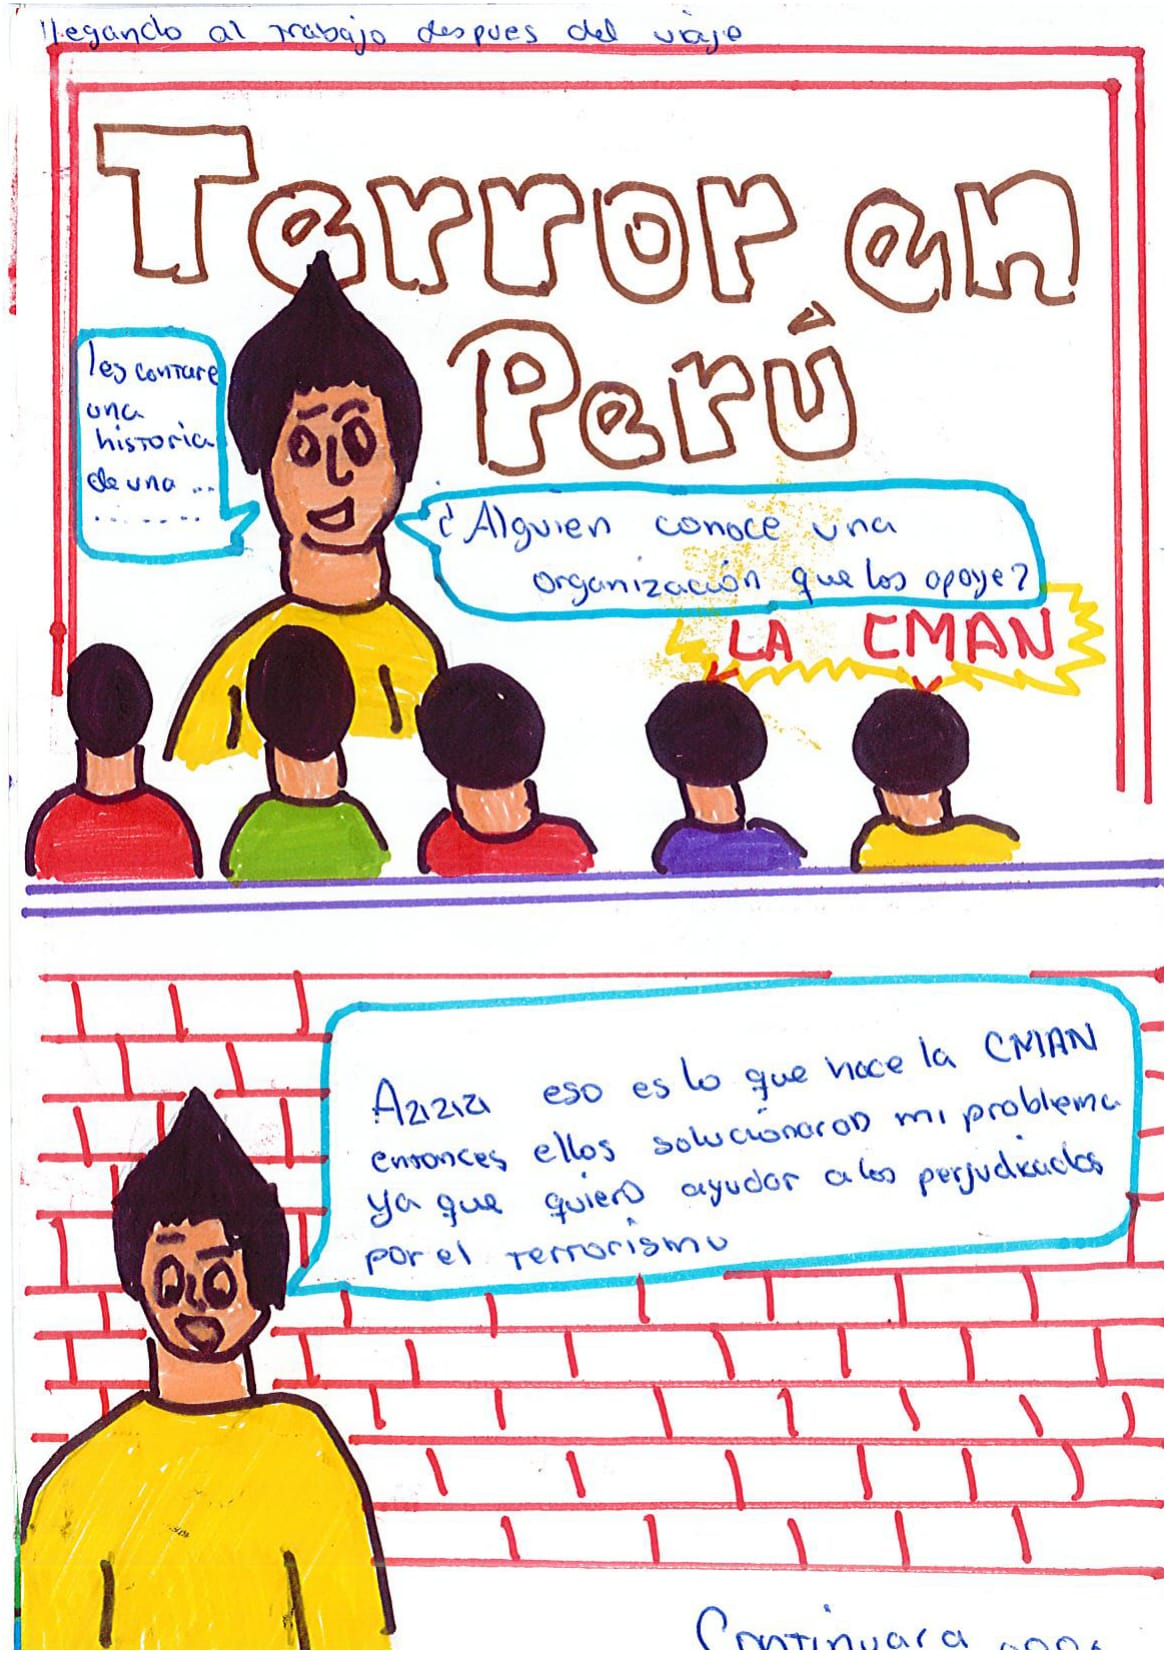 llegando al trabajo despues del viaje
Terror en
Perú
les contare
una
historia
de una ...
.......
¿Alguien conoce una
organización que los apoye?
LA CMAN
Azizizi eso es lo que hace la CMAN
entonces ellos solucionaron mi problema
ya que quiero ayudar a los perjudicados
por el terrorismo
Continuara ....